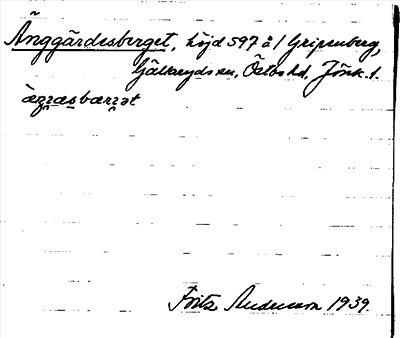 Änggärdesberget, höjd 597 å/ Gripenberg,
Gällaryds sn, Östbo hd, Jönk. l.
Fritz Andersson 1939.